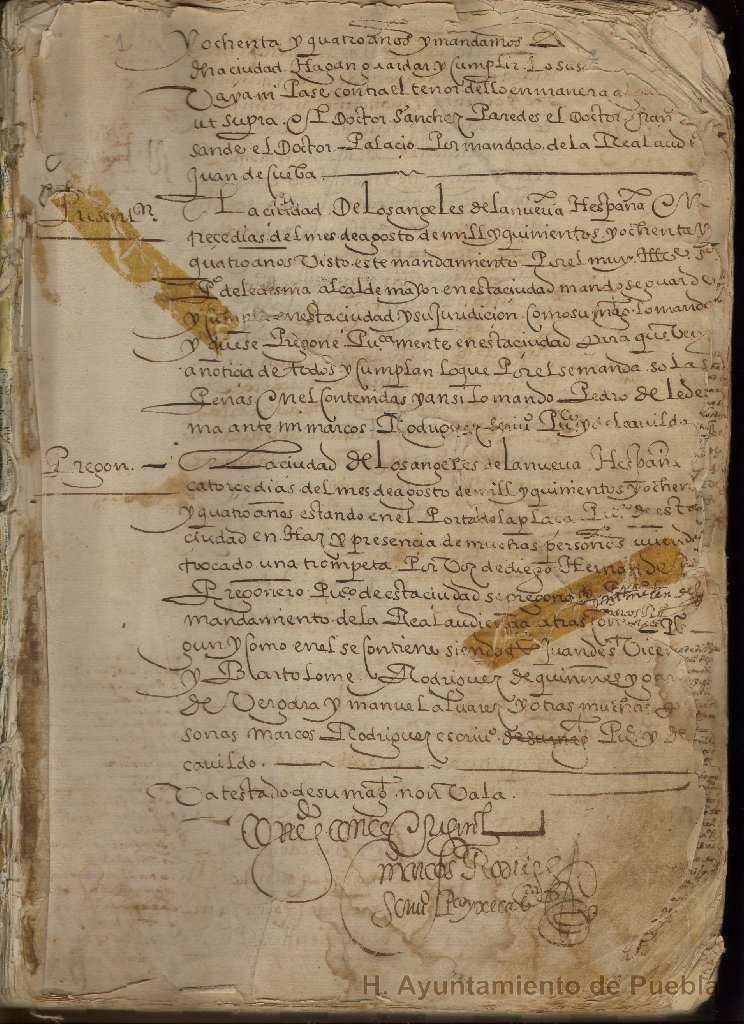 Yochenta y quatro años y mandamos A
dha ciudad Hagan guardar y Cumplir Lo sus
Vaya ni Pase contra el tenor dello en manera
ut supra. el Doctor Sanchez Paredes el Doctor fran
sande el Doctor Palacio Por mandado de la Real aud
Juan de Cueba
Present.on
E La ciudad De Los angeles de la nueva Hespaña
trece dias del mes de agosto de mill y quinientos y ochenta y
quatro años Visto este mandamiento Por el muy Illre Sr
Po de ledesma alcalde mayor en esta ciudad mando se guarde
y Cumpla en esta ciudad y su juridicion Como su magd Lo manda
y que se Pregone Puca mente en esta ciudad para que Ven
a noticia de todos y Cumplan lo que Por el se manda so Las
Penas en el Contenidas y ansi Lo mando Pedro de Lede
ma ante mi marcos Rodriguez scrivo Puco y de Cavildo
Pregon.
E La ciudad de Los angeles de La nueva Hespaña
catorce dias del mes de agosto de mill y quinientos y ochen
y quatro años estando en el Portal de la plaça Puca de esta
ciudad en Haz y presencia de muchas personas aviendo
tocado una trompeta Por Voz de diego Hernande
Pregonero Puco de esta ciudad se pregono
mandamiento de la Real audiencia atras
gun y Como en el se Contiene siendo to Juan de
y Bartolome Rodriguez de quiñones y
de Vergara y manuel alvarez y otras muchas per
sonas marcos Rodriguez escrivo de su magd Puco y de
cavildo.
Va testado de su magd non Vala.
marcos Rodriguez
scrivo Puco
H. Ayuntamiento de Puebla